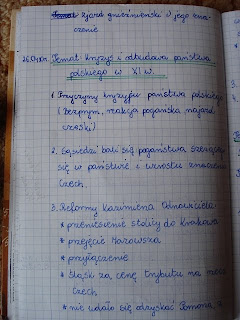 Temat: Zjazd gnieźnieński i jego zna-
czenie
Temat: Kryzys i odbudowa państwa
polskiego w XI w.
1. Przyczyny kryzysu państwa polskiego
(Bezprym, reakcja pogańska, najazd
czeski)
2. Sąsiedzi bali się pogaństwa szerzącego
się w państwie i wzrostu znaczenia
Czech.
3. Reformy Kazimierza Odnowiciela
* przeniesienie stolicy do Krakowa
* przejęcie Mazowsza
* przyłączenie
* Śląski za cenę trybutu na rzecz
Czech
* nie udało się odzyskać Pomorza